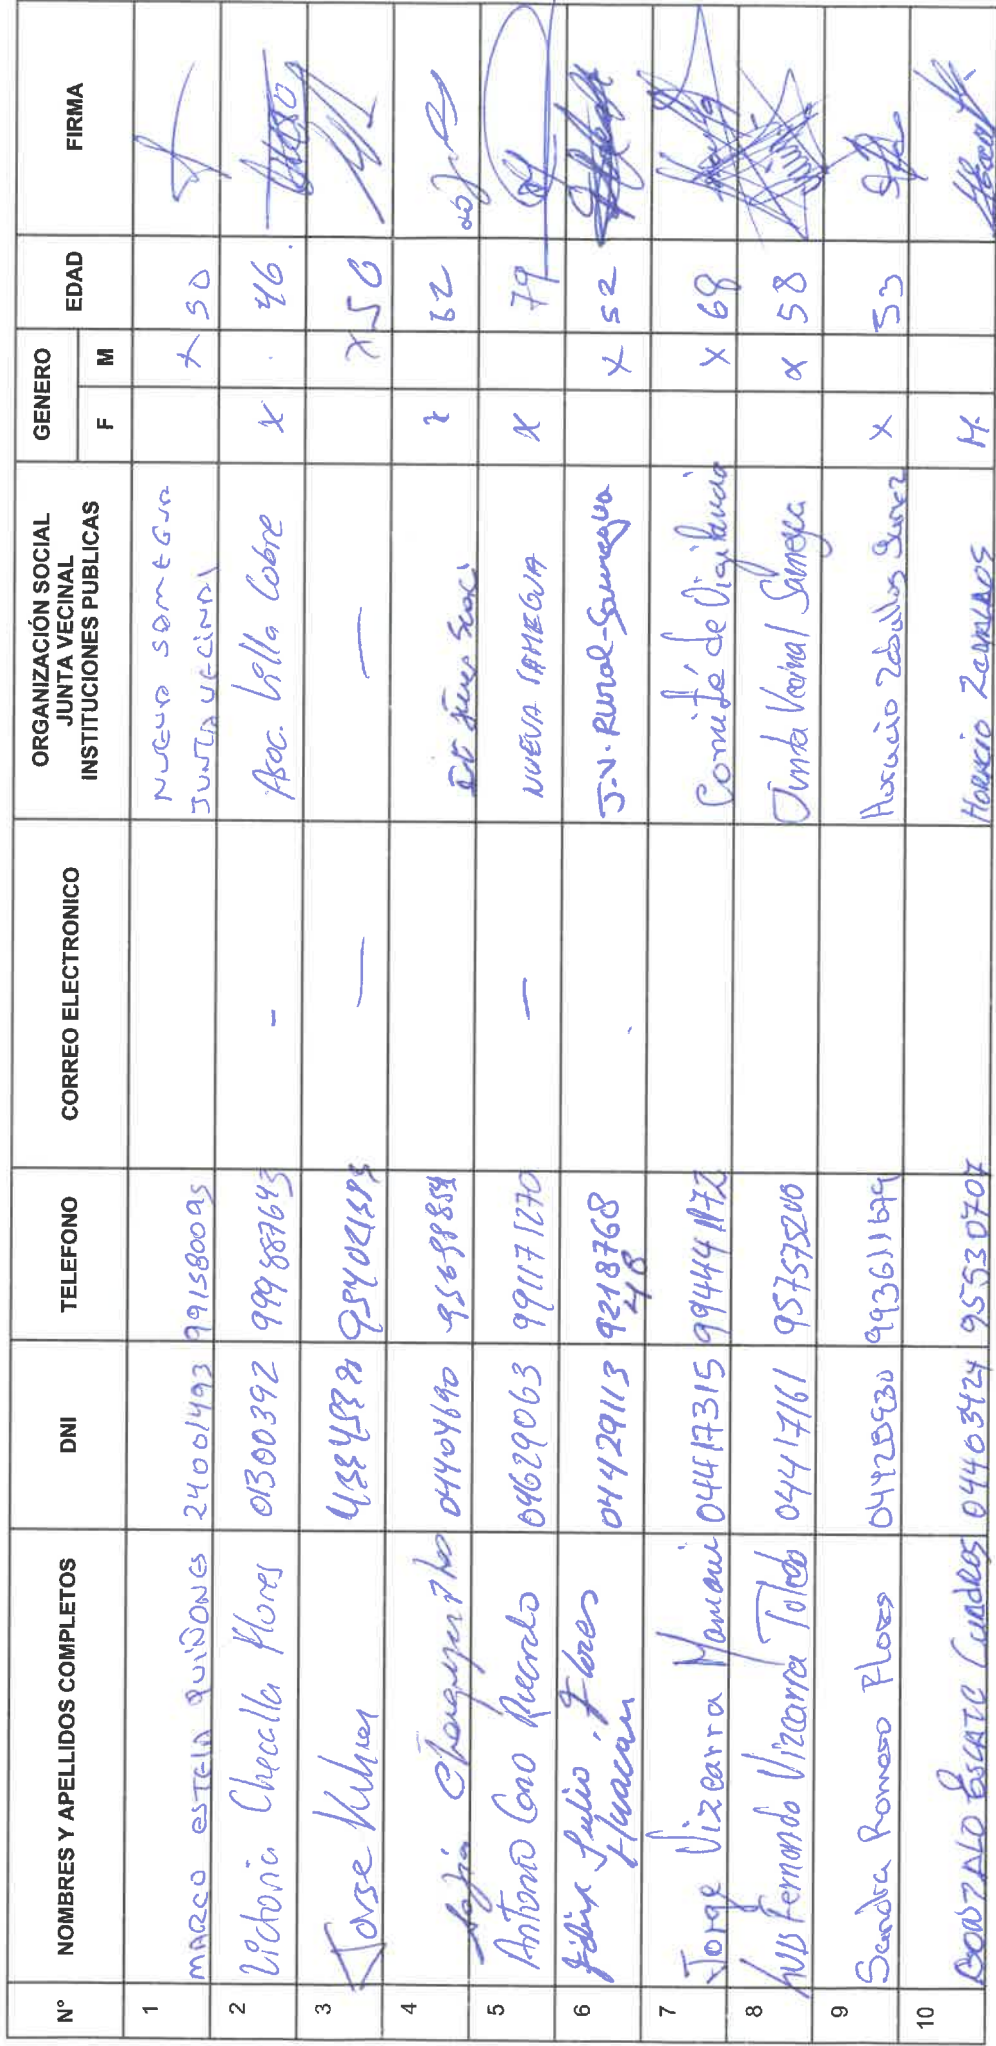 N° NOMBRES Y APELLIDOS COMPLETOS DNI TELEFONO CORREO ELECTRONICO ORGANIZACIÓN SOCIAL JUNTA VECINAL INSTITUCIONES PUBLICAS GENERO F M EDAD FIRMA
1 MARCO ESTELA QUIÑONES 24001493 991580095 NUEVO SAMEGUA JUNTA VECINAL X 50
2 Victoria Checalla Flores 01300392 999887643 - Asoc. Villa Cobre X 46
3 — — X 50
4 04404690 X 62
5 Antonio Cano 04629063 991171270 — NUEVA SAMEGUA X 79
6 Julio Flores Huacan 04429113 9218768 48 J.V. Rural-Samegua X 52
7 Jorge Vizcarra Mamani 04417315 994441172 Comité de Vigilancia X 68
8 Luis Fernando Vizcarra Toledo 04417161 957575200 Junta Vecinal Samegua X 58
9 Sandra Romero Flores 04428930 993611679 Horacio Zeballos Gamez X 53
10 GONZALO ESCATE 04403424 95530707 HORACIO ZEBALLOS M.